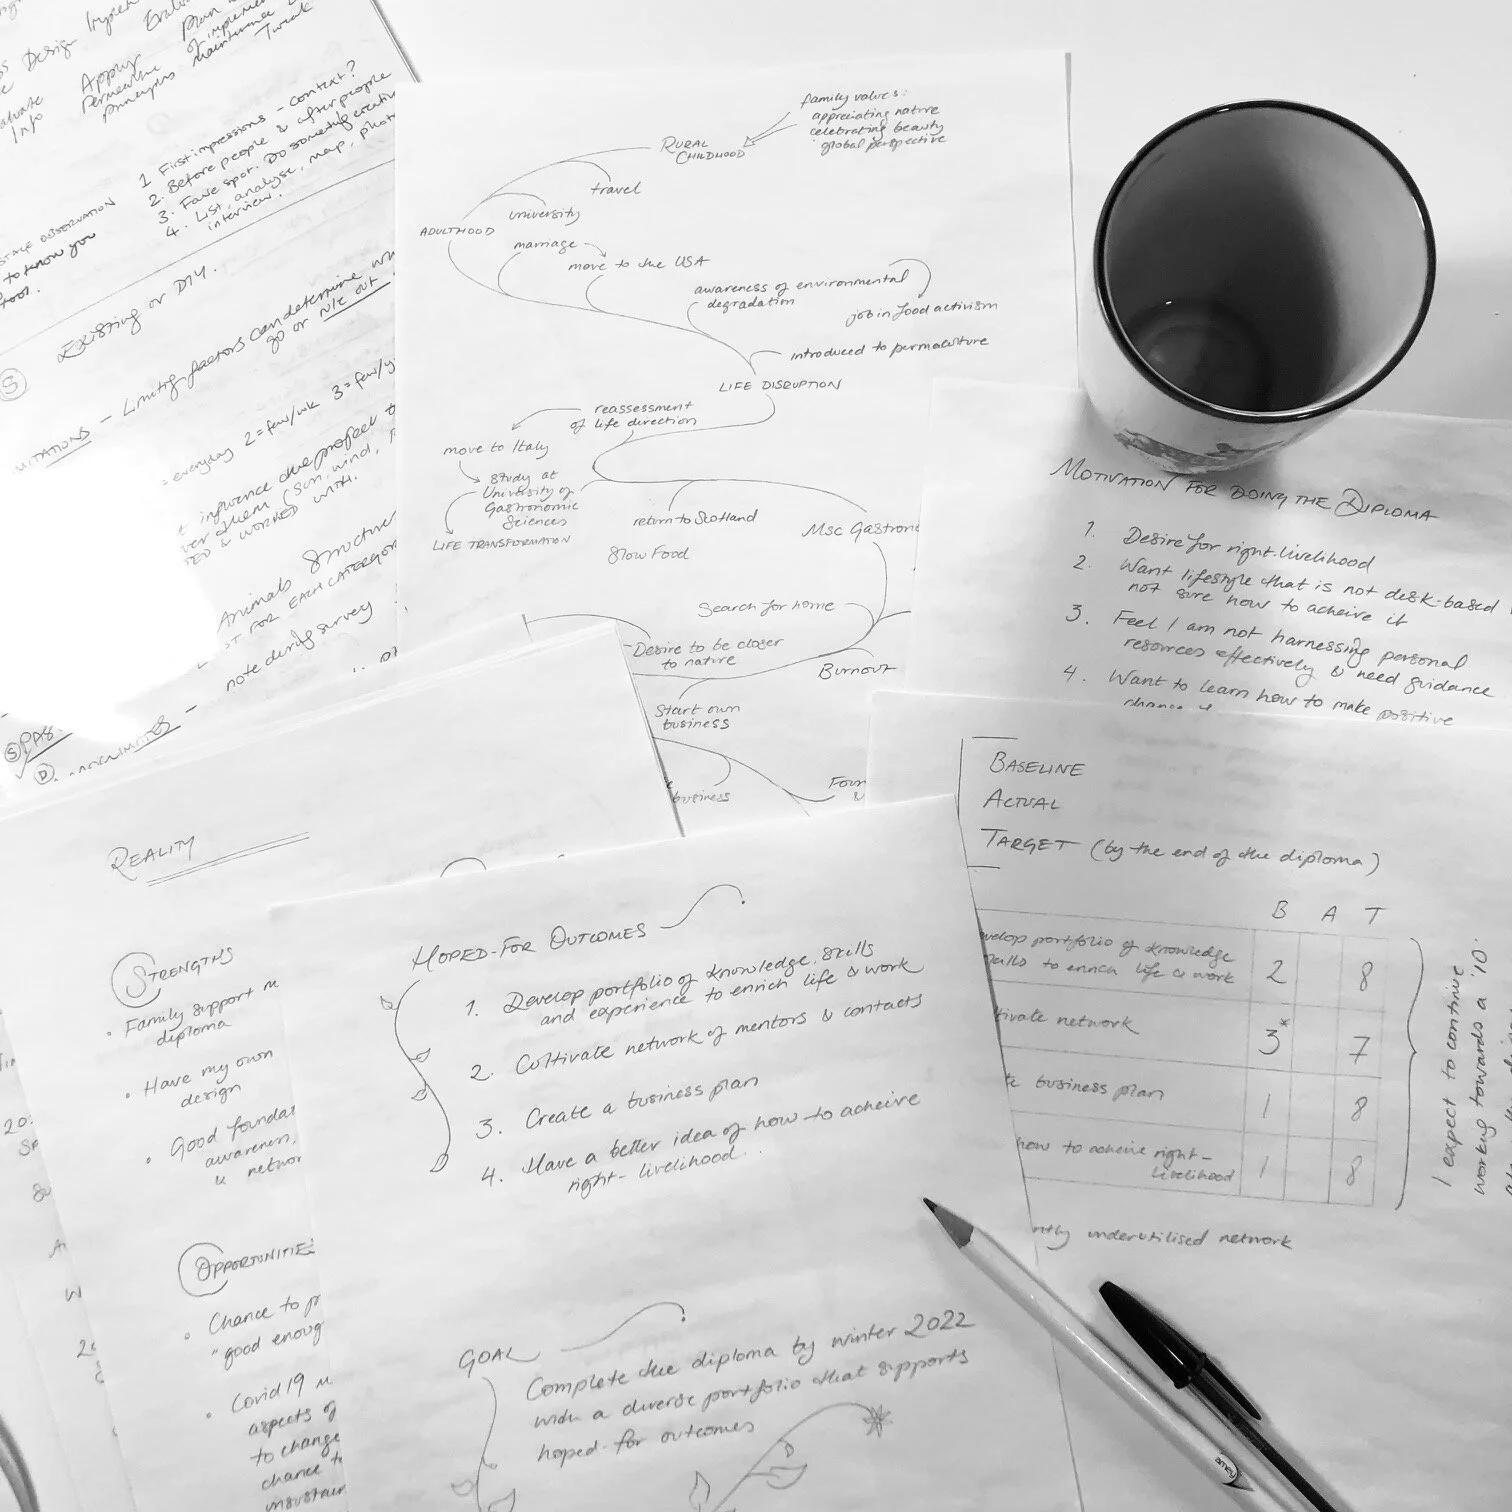 Design
Apply
Permaculture
Principles
Plan
of implement
maintenance
Tweak
Info
1 First impressions – context?
2. Before people & after people
3. Fave spot. Do something creative
4. List, analyse, map, photo
interview.
OBSERVATION
to know you
Existing or DIY.
S
– Limiting factors can determine
go or
everyday 2=few/wk 3=few/y
influence the project
over them (sun, wind,
& WORKED WITH.
Animals Structures
FOR EACH CATERGOR
note during survey
family values:
appreciating nature
celebrating beauty
global perspective
RURAL
CHILDHOOD
travel
university
ADULTHOOD
marriage
move to the USA
awareness of environmental
degradation
job in food activism
introduced to permaculture
LIFE DISRUPTION
reassessment
of life direction
move to Italy
Study at
University of
Gastronomic
Sciences
LIFE TRANSFORMATION
return to Scotland
Msc Gastron
Slow Food
Search for home
Desire to be closer
to nature
Burnout
Start own
business
business
Foun
&
MOTIVATION FOR DOING THE DIPLOMA
1. Desire for right-livelihood
2. Want lifestyle that is not desk-based
not sure how to acheive it
3. Feel I am not harnessing personal
resources effectively & need guidance
4. Want to learn how to make positive
BASELINE
ACTUAL
TARGET (by the end of the diploma)
B A T
velop portfolio of knowledge
skills to enrich life & work 2 8
tivate network 3* 7
te business plan 1 8
how to acheive right-
livelihood 1 8
I expect to continue
working towards a '10'.
ntly underutilised network
REALITY
STRENGTHS
• Family support
diploma
• Have my own
design
• Good foundat
awareness,
& networ
OPPORTUNITIES
• Chance to pr
"good enoug
• Covid19
aspects of
to change
chance t
HOPED-FOR OUTCOMES
1. Develop portfolio of knowledge, skills
and experience to enrich life & work
2. Cultivate network of mentors & contacts
3. Create a business plan
4. Have a better idea of how to acheive
right-livelihood.
GOAL
Complete the diploma by winter 2022
with a diverse portfolio that supports
hoped-for outcomes